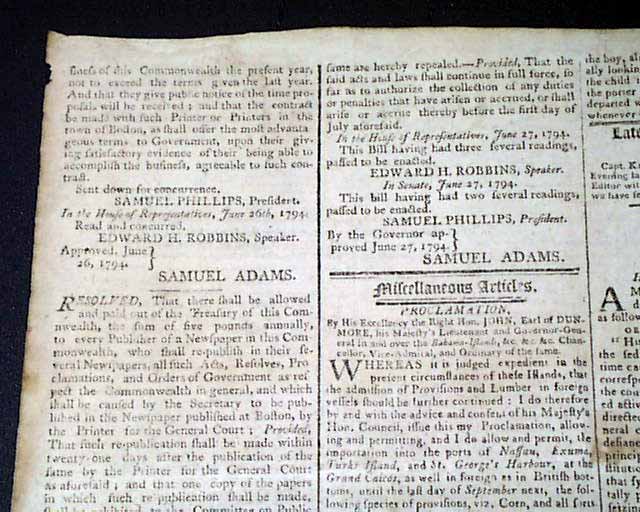 ſineſs of this Commonwealth the preſent year,
not to exceed the terms given the laſt year.
And that they give public notice of the time pro-
poſals will be received; and that the contract
be made with ſuch Printer or Printers in the
town of Boſton, as ſhall offer the moſt advanta-
geous terms to Government, upon their giv-
ing ſatisfactory evidence of their being able to
accompliſh the buſineſs, agreeable to ſuch con-
tract.
Sent down for concurrence.
SAMUEL PHILLIPS, Preſident.
In the Houſe of Repreſentatives, June 26th, 1794.
Read and concurred,
EDWARD H. ROBBINS, Speaker.
Approved, June }
26, 1794. }
SAMUEL ADAMS.
RESOLVED, That there ſhall be allowed
and paid out of the Treaſury of this Com-
monwealth, the ſum of five pounds annually,
to every Publiſher of a Newſpaper in this Com-
monwealth, who ſhall re-publiſh in their ſe-
veral Newſpapers, all ſuch Acts, Reſolves, Pro-
clamations, and Orders of Government as reſ-
pect the Commonwealth in general, and which
ſhall be cauſed by the Secretary to be pub-
liſhed in the Newſpaper publiſhed at Boſton, by
the Printer for the General Court; Provided,
That ſuch re-publication ſhall be made within
twenty-one days after the publication of the
ſame by the Printer for the General Court
as aforeſaid; and that one copy of the papers
in which ſuch re-publication ſhall be made,
ſhall be exhibited to the Committee on Public
ſame are hereby repealed.—Provided, That the
ſaid acts and laws ſhall continue in full force, ſo
far as to authorize the collection of any duties
or penalties that have ariſen or accrued, or ſhall
ariſe or accrue thereby before the firſt day of
July aforeſaid.
In the Houſe of Repreſentatives, June 27, 1794.
This Bill having had three ſeveral readings,
paſſed to be enacted.
EDWARD H. ROBBINS, Speaker.
In Senate, June 27, 1794.
This bill having had two ſeveral readings,
paſſed to be enacted.
SAMUEL PHILLIPS, Preſident.
By the Governor ap- }
proved June 27, 1794. }
SAMUEL ADAMS.
Miſcellaneous Articles.
PROCLAMATION,
By His Excellency the Right Hon. JOHN, Earl of DUN-
MORE, his Majeſty's Lieutenant and Governor-Gene-
ral in and over the Bahama-Iſlands, &c. &c. &c. Chan-
cellor, Vice-Admiral, and Ordinary of the ſame.
WHEREAS it is judged expedient in the
preſent circumſtances of theſe Iſlands, that
the admiſſion of Proviſions and Lumber in foreign
veſſels ſhould be further continued: I do therefore
by and with the advice and conſent of his Majeſty's
Hon. Council, iſſue this my Proclamation, allow-
ing and permitting, and I do allow and permit, the
importation into the ports of Naſſau, Exuma,
Turks Iſland, and St. George's Harbour, at the
Grand Caicos, as well in foreign as in Britiſh bot-
toms, until the laſt day of September next, the fol-
lowing ſpecies of proviſions, viz. Corn, and all ſorts
the boy, al
ally looking
the child
the porter
departed w
whenever
Late
Capt. K
Evening la
Editor with
we have ſe
A
as follow
of the
between
directors
neral d
conſtitu
French
defianc
croach